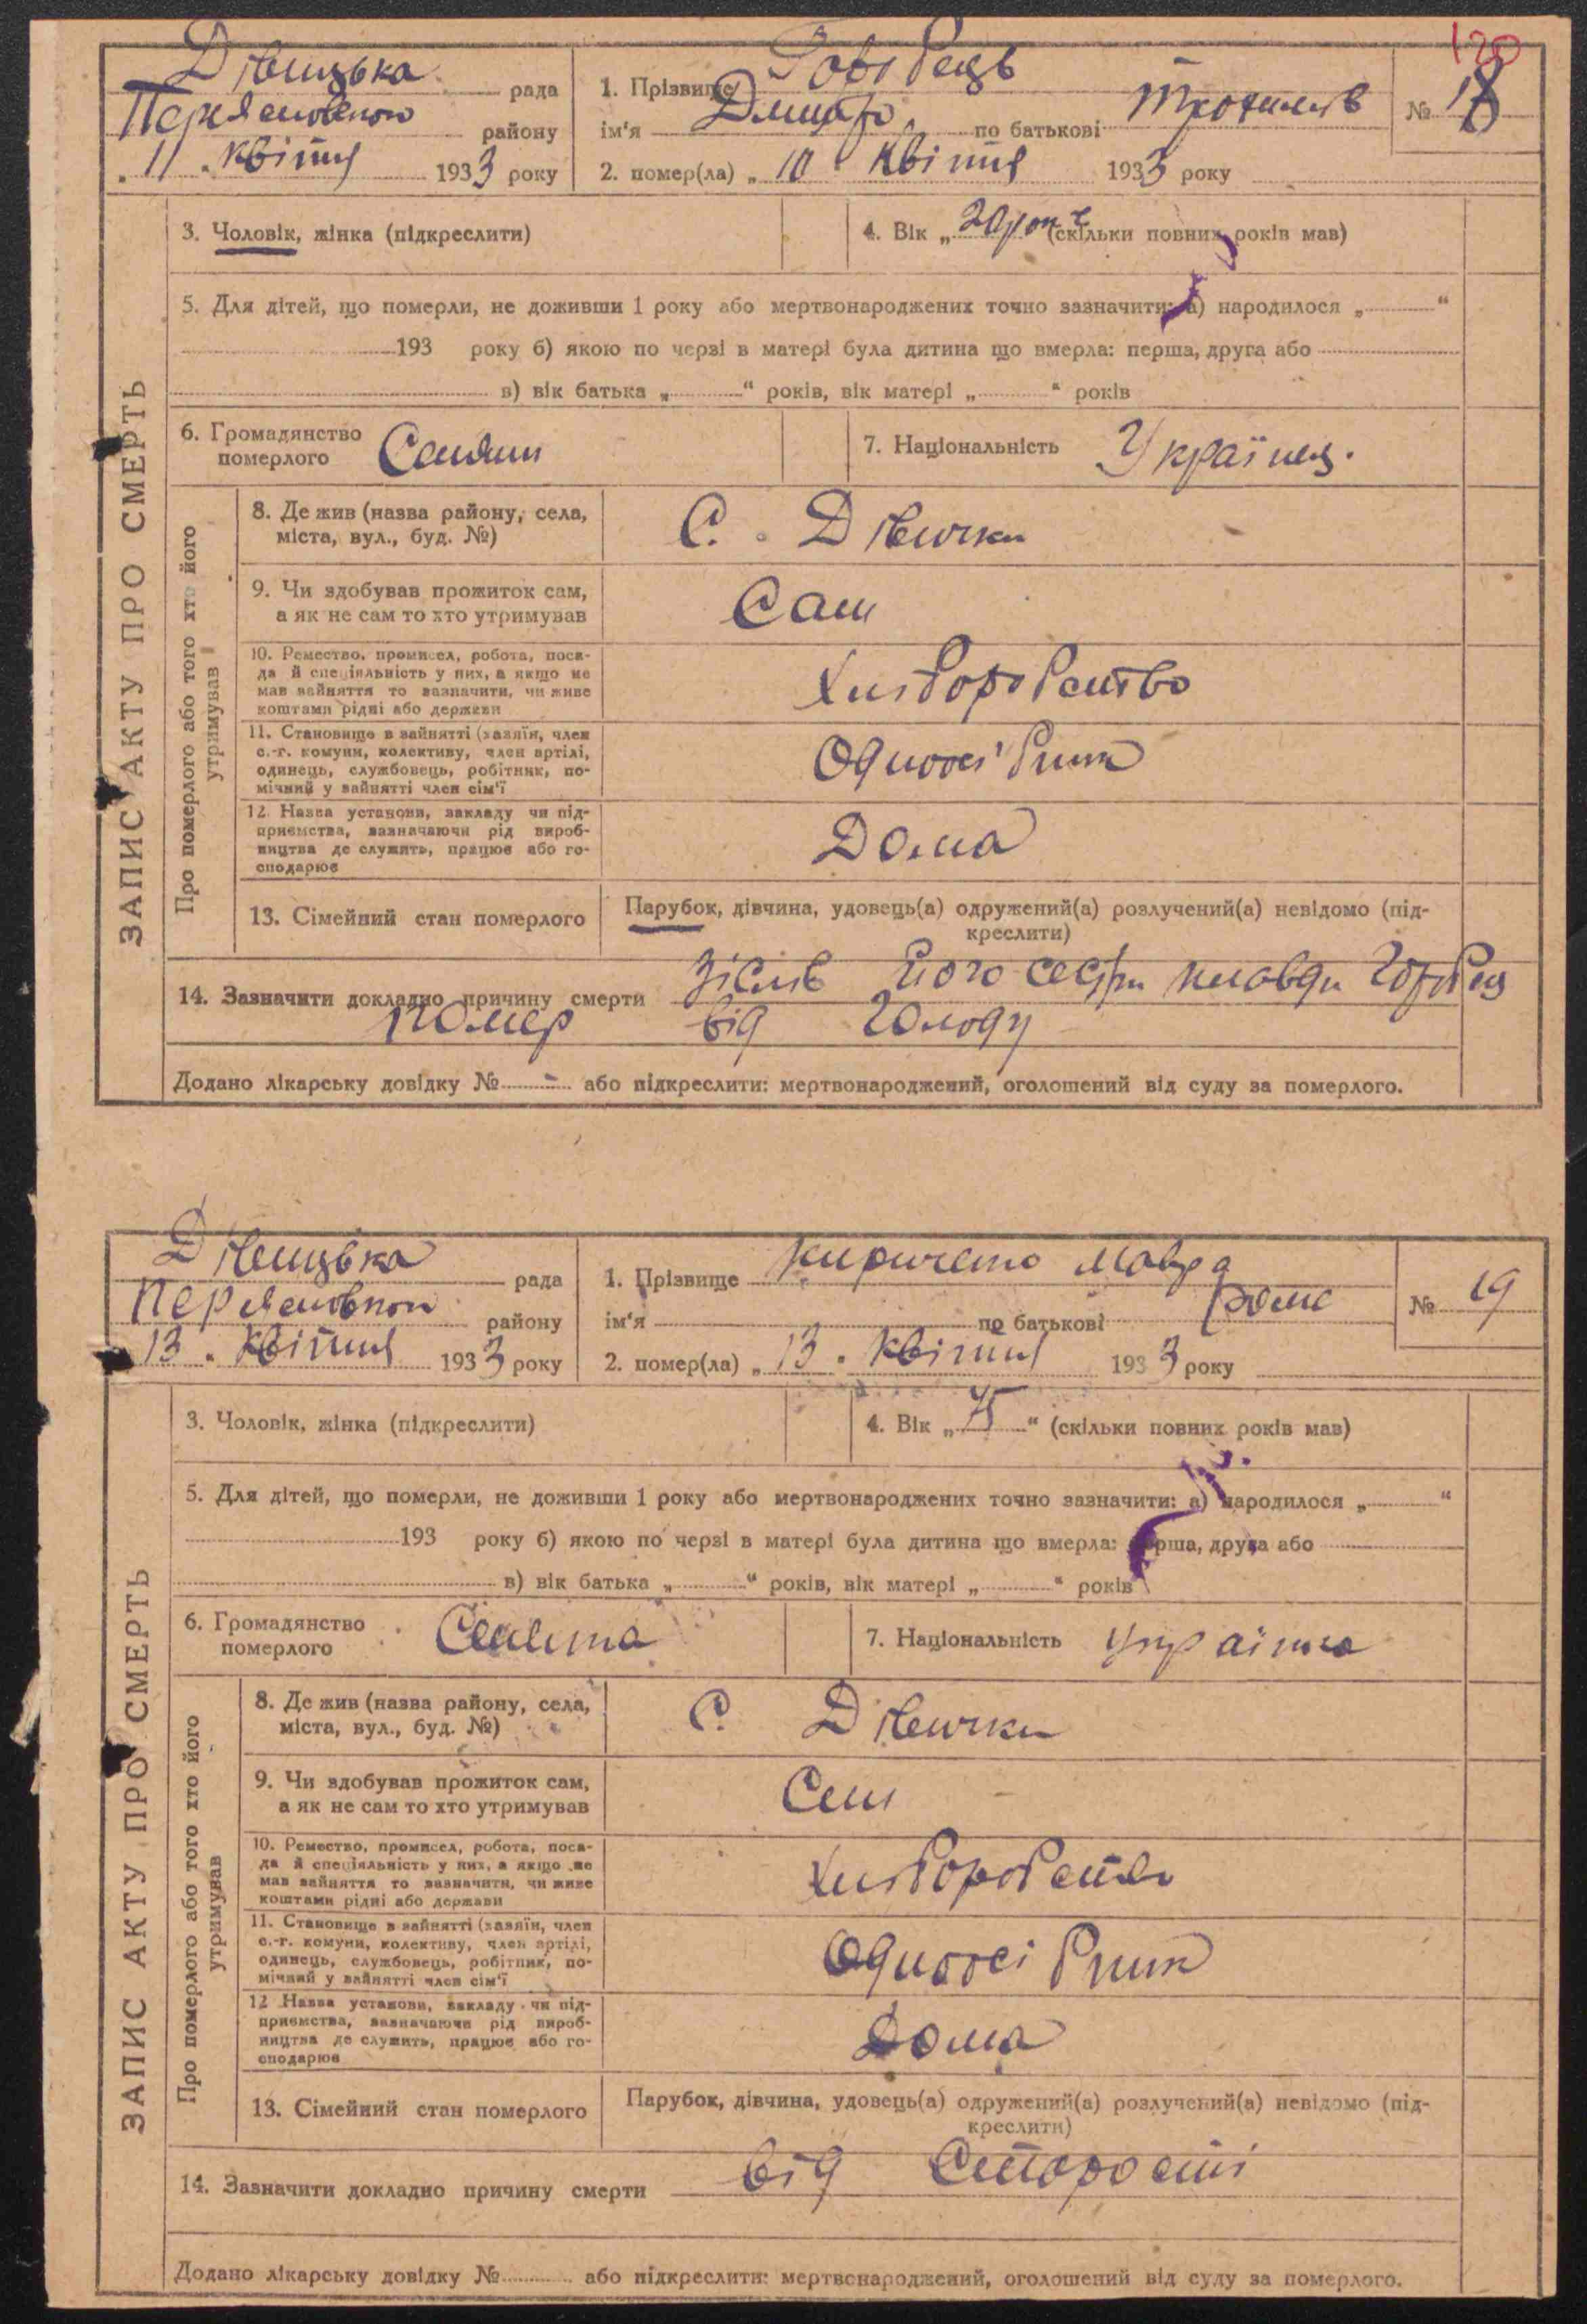 120
Дівицька рада
Переяславського району
11 квітня 1933 року
1. Прізвище Горобець
ім'я Дмитро по батькові Трохимов
№ 18
2. помер(ла) „ 10 квітня 1933 року
ЗАПИС АКТУ ПРО СМЕРТЬ
3. Чоловік, жінка (підкреслити)
4. Вік „ 20 рок (скільки повних років мав)
5. Для дітей, що померли, не доживши 1 року або мертвонароджених точно зазначити: а) народилося „ “
193 року б) якою по черзі в матері була дитина що вмерла: перша, друга або
в) вік батька „ “ років, вік матері „ “ років
6. Громадянство
померлого Селянин
7. Національність Українец.
Про померлого або того хто його
утримував
8. Де жив (назва району, села,
міста, вул., буд. №)
С. Дівички
9. Чи здобував прожиток сам,
а як не сам то хто утримував
Сам
10. Ремество, промисел, робота, поса-
да й спеціяльність у них, а якщо не
мав зайняття то зазначити, чи живе
коштами рідні або держави
Хліборобство
11. Становище в зайнятті (хазяїн, член
с.-г. комуни, колективу, член артілі,
одинець, службовець, робітник, по-
мічний у зайнятті член сім'ї
Одноосібник
12. Назва установи, закладу чи під-
приємства, зазначаючи рід вироб-
ництва де служить, працює або го-
сподарює
Дома
13. Сімейний стан померлого
Парубок, дівчина, удовець(а) одружений(а) розлучений(а) невідомо (під-
креслити)
14. Зазначити докладно причину смерти зіслів його сестри Клавди Горобец
помер від голоду
Додано лікарську довідку № - або підкреслити: мертвонароджений, оголошений від суду за померлого.
Дівицька рада
Переяславського району
13 квітня 1933 року
1. Прізвище Кириченко Мавра
ім'я по батькові
№ 19
2. помер(ла) „ 13 квітня 1933 року
ЗАПИС АКТУ ПРО СМЕРТЬ
3. Чоловік, жінка (підкреслити)
4. Вік „ 75 “ (скільки повних років мав)
5. Для дітей, що померли, не доживши 1 року або мертвонароджених точно зазначити: а) народилося „ “
193 року б) якою по черзі в матері була дитина що вмерла: перша, друга або
в) вік батька „ “ років, вік матері „ “ років
6. Громадянство
померлого Селянка
7. Національність Українка
Про померлого або того хто його
утримував
8. Де жив (назва району, села,
міста, вул., буд. №)
С. Дівички
9. Чи здобував прожиток сам,
а як не сам то хто утримував
Сам
10. Ремество, промисел, робота, поса-
да й спеціяльність у них, а якщо не
мав зайняття то зазначити, чи живе
коштами рідні або держави
Хліборобство
11. Становище в зайнятті (хазяїн, член
с.-г. комуни, колективу, член артілі,
одинець, службовець, робітник, по-
мічний у зайнятті член сім'ї
Одноосібник
12. Назва установи, закладу чи під-
приємства, зазначаючи рід вироб-
ництва де служить, працює або го-
сподарює
Дома
13. Сімейний стан померлого
Парубок, дівчина, удовець(а) одружений(а) розлучений(а) невідомо (під-
креслити)
14. Зазначити докладно причину смерти від Старости
Додано лікарську довідку № або підкреслити: мертвонароджений, оголошений від суду за померлого.